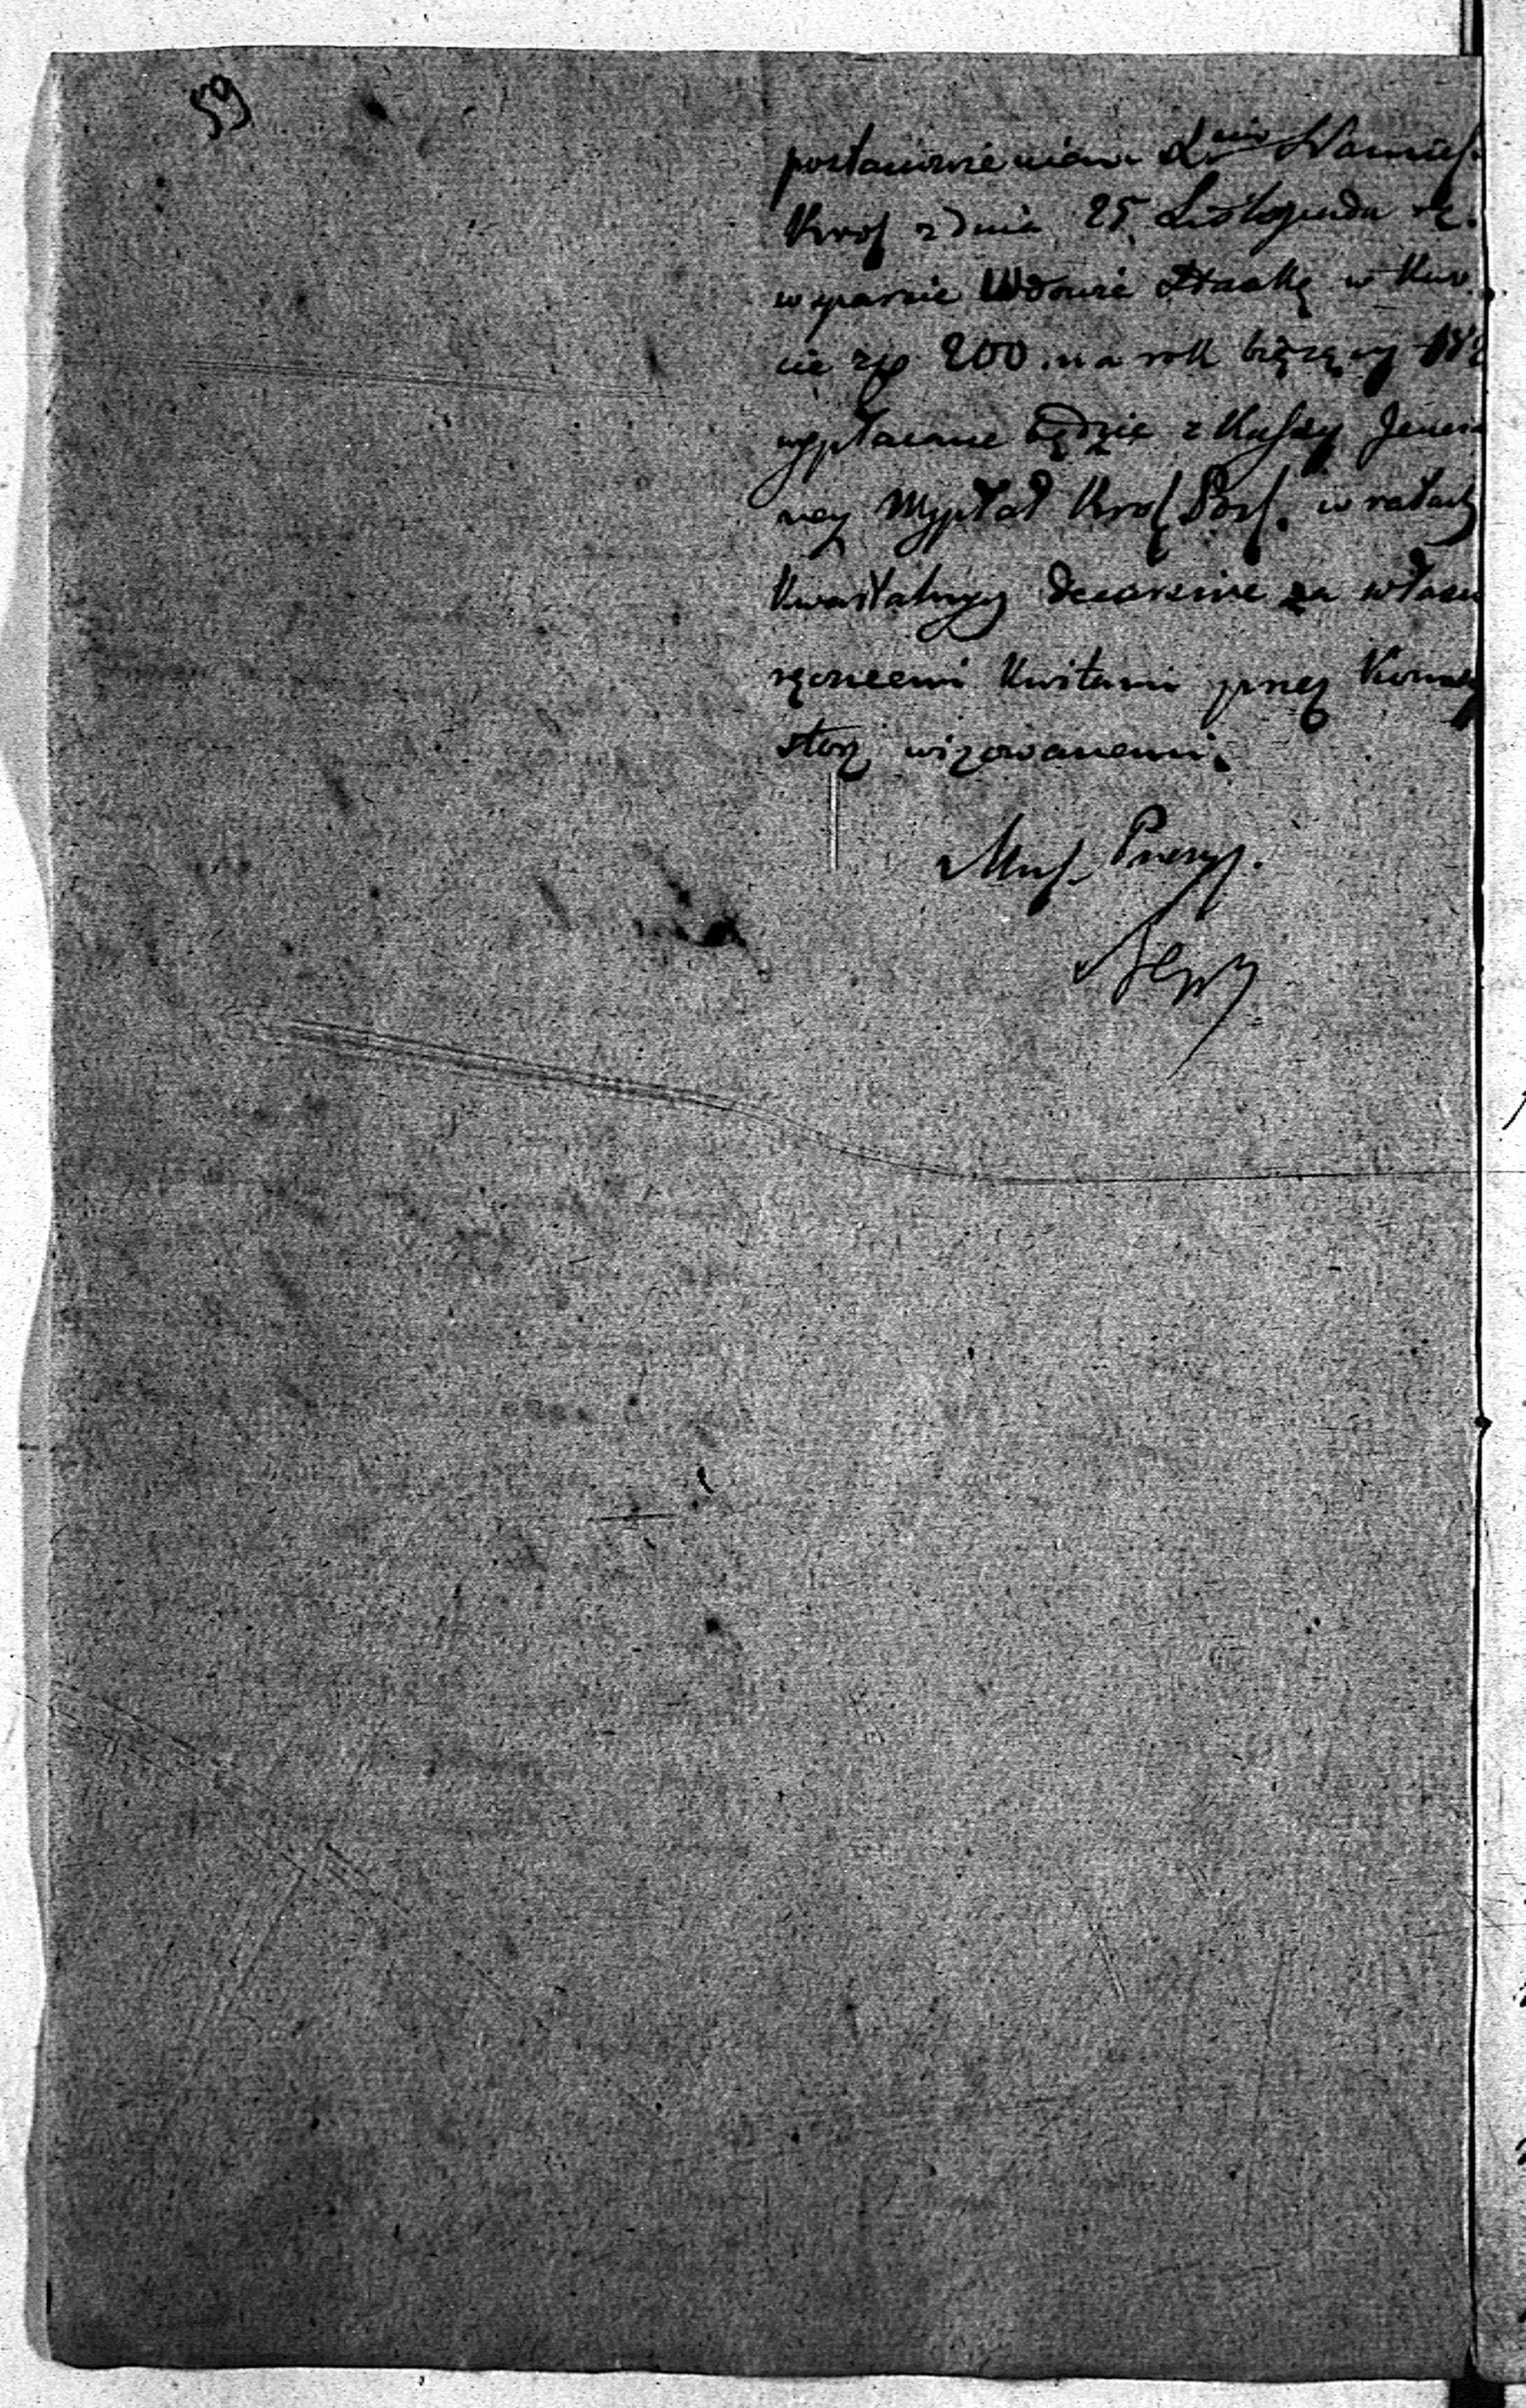 59
postanowieniem Xcia Namies.
Król z dnia 25 Listopada r.
wsparcie Wdowie w Kwo.
cie zlp 200. na rok bieżący 182
wypłacane będzie z Kassy Jenera
ney Wypłat Król. Pols. w ratach
Kwartalnych decursive za własno
ręcznemi Kwitami przez Konsy
storz wizowanemi.
Min. Prezyd.